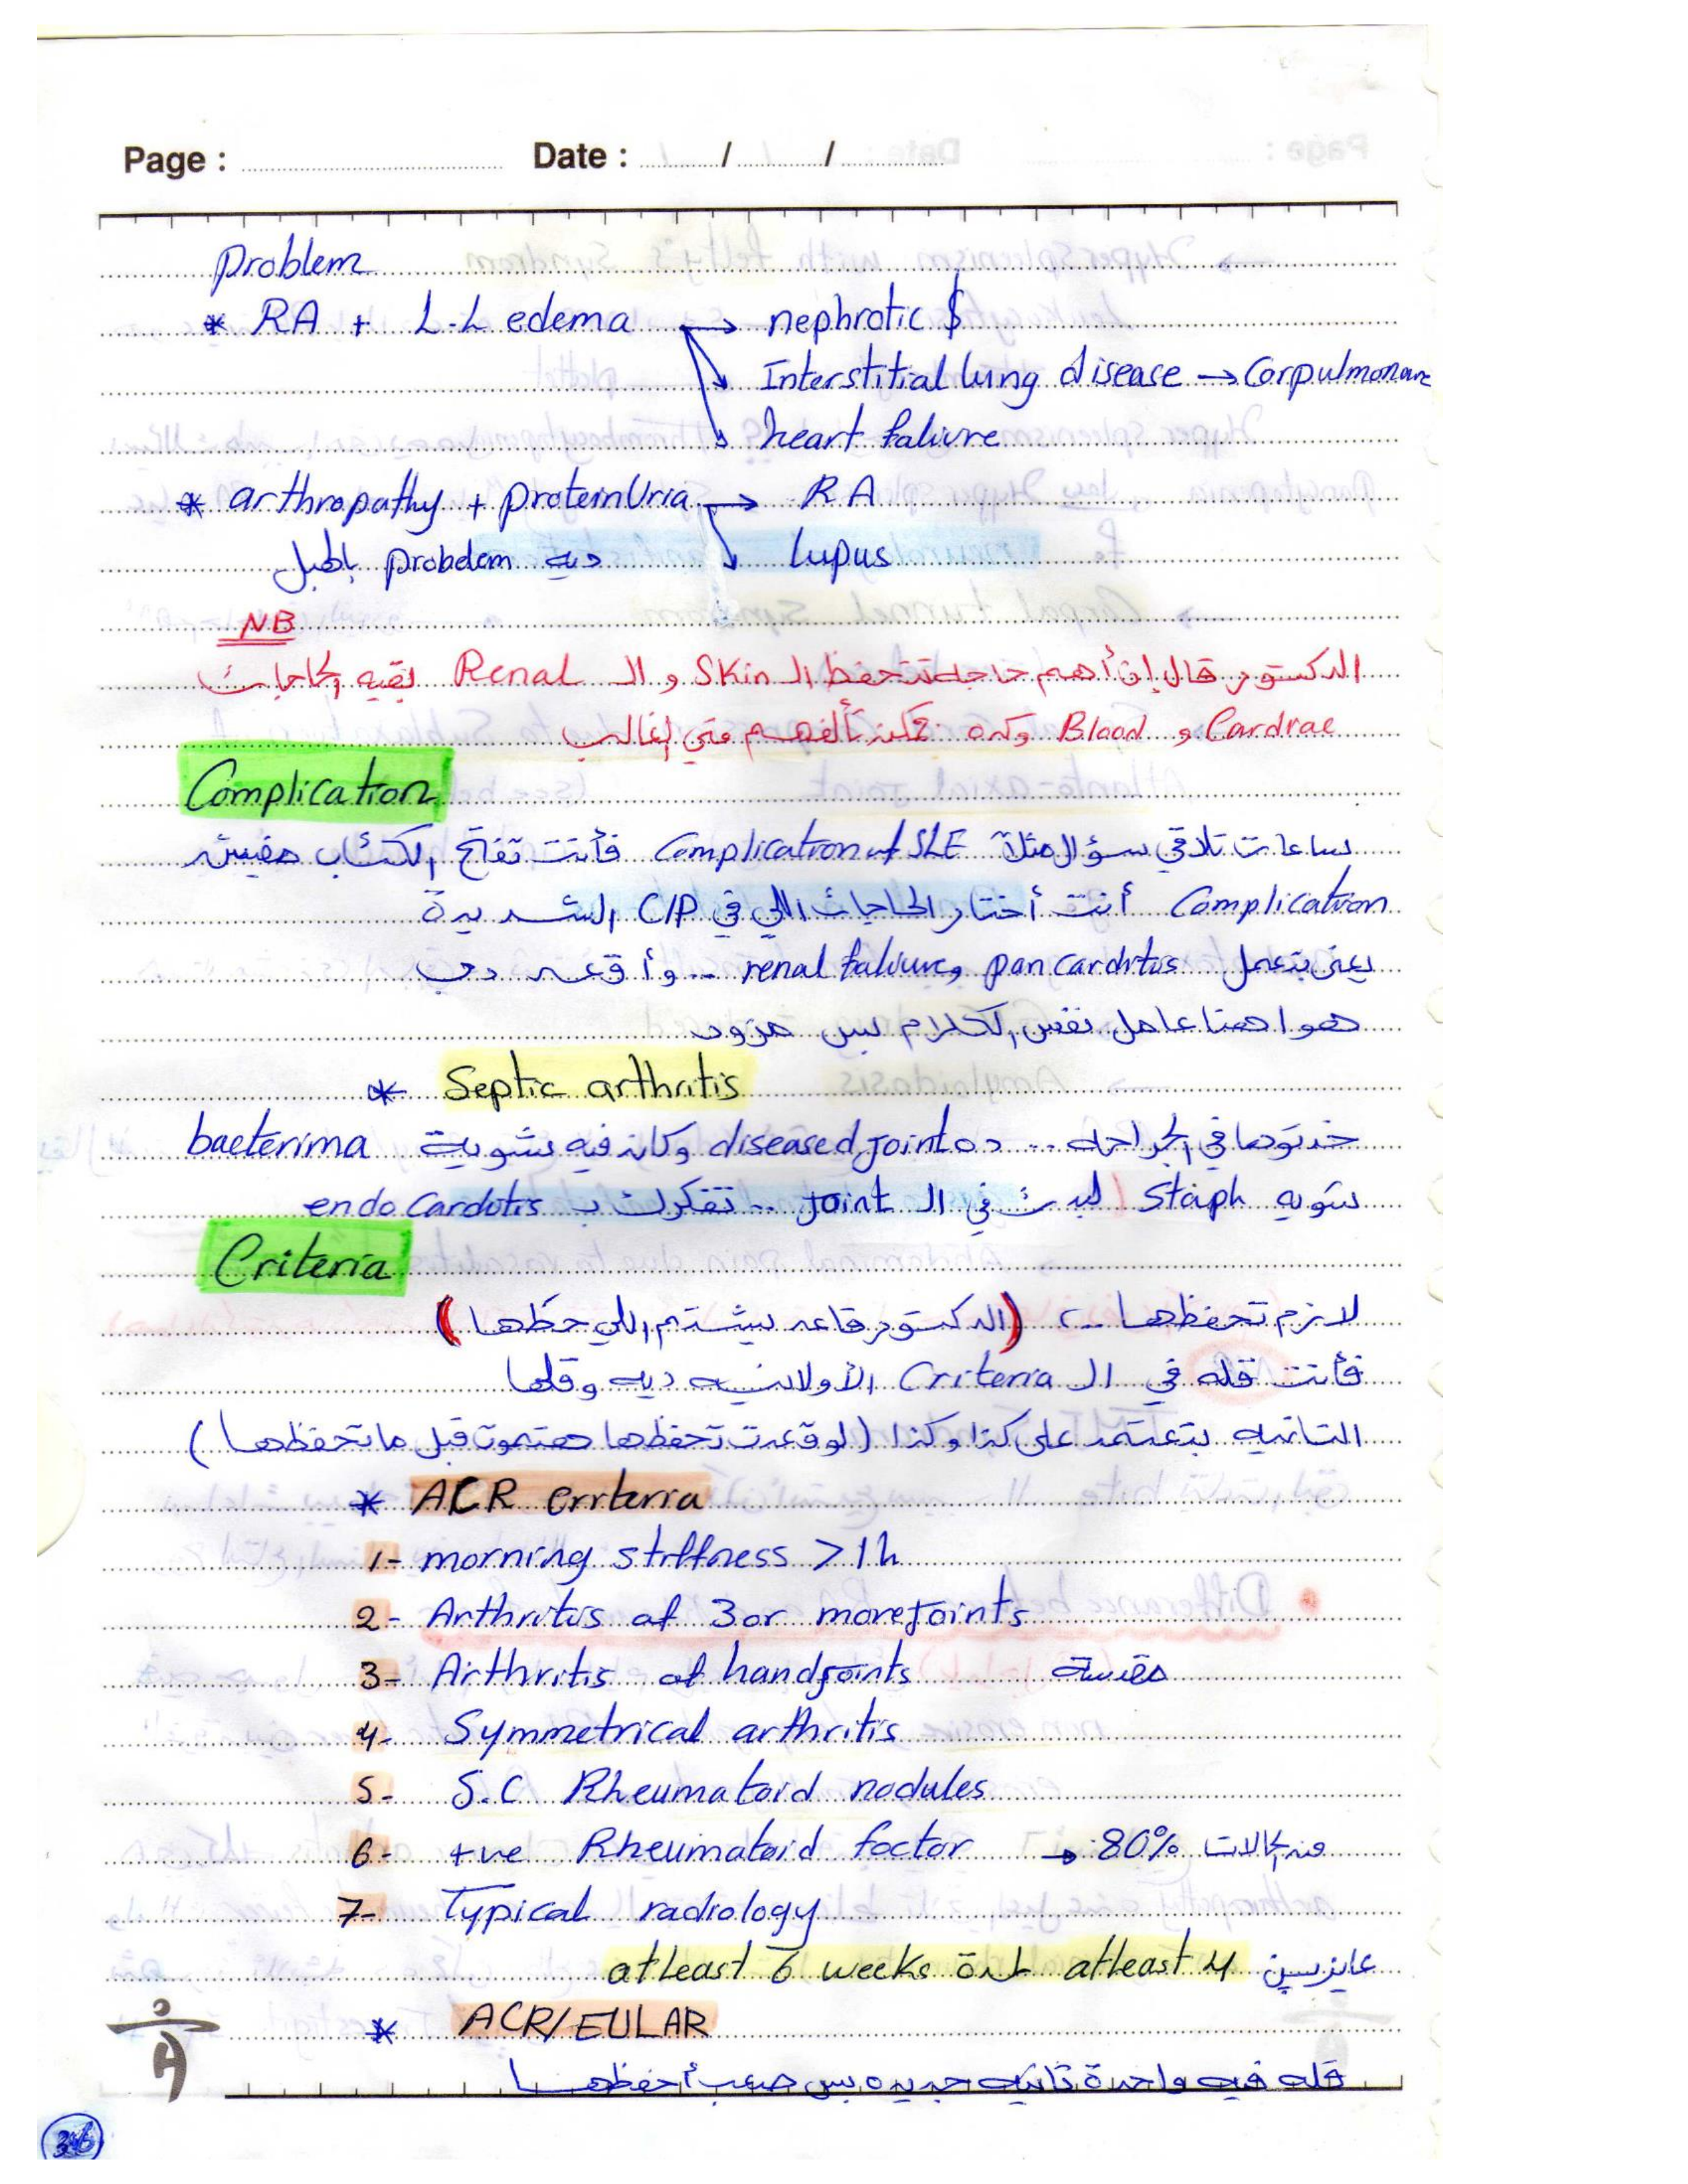 Page : Date : / /
Problem
* RA + L.L edema → nephrotic $
Interstitial lung disease → Corpulmonare
heart faliure
* arthropathy + proteinUria → RA
ديه probelem بالهبل Lupus
NB
الدكتور قال إن أهم حاجة تتحفظ ال Skin و ال Renal بقيه الحاجات
Cardiac و Blood وكده ممكن تألفهم متى الغالب
Complication
ساعات تلاقي سؤال مثلا Complication of SLE فأنت تفتح الكتاب مفيش
Complication أنت أختار الحاجات اللي في C/P الشديدة
يعني بتعمل pancarditis و renal faliure ...
هوا هنا عامل نفس الكلام بس مزود
* Septic arthritis
خدتوها في الجراحه ... ده diseased joint وكان فيه شوية bacterima
شويه Staph لبدت في ال Joint .. تفكرك ب endo Carditis
Criteria
لازم تحفظها .. (الدكتور قاعد يشتم اللي حطها)
فأنت قله في ال Criteria الأولانيه ديه وقلها
التانيه بتعتمد على كذا وكذا (لو قعدت تحفظها هتموت قبل ما تحفظها)
* ACR criteria
1- morning stiffness > 1h
2- Arthritis of 3 or more joints
3- Arthritis of hand joints
4- Symmetrical arthritis
5- S.C Rheumatoid nodules
6- +ve Rheumatoid factor → 80% من الحالات
7- Typical radiology
عايزين atleast 4 لمدة atleast 6 weeks
* ACR/EULAR
قله فيه واحدة تانيه جديده بس صعب أحفظها
36